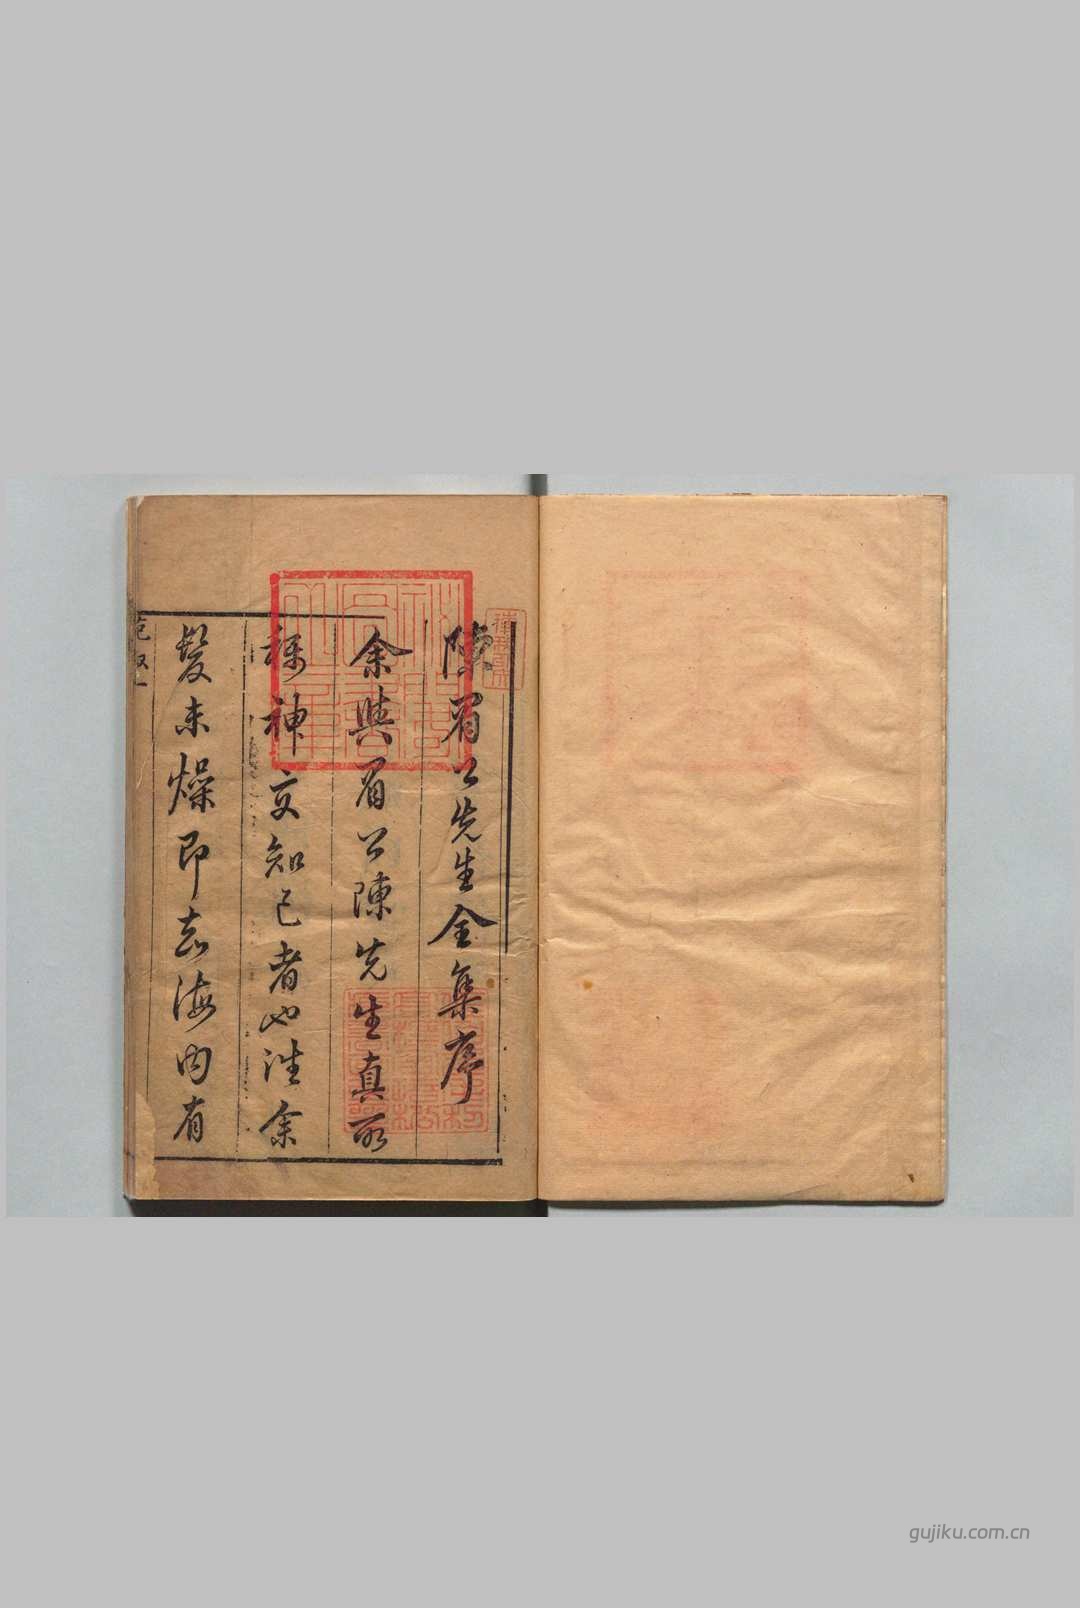 陳眉公先生全集序
余與眉公陳先生真所
稱神交知己者也注余
髮未燥即知海内有
gujiku.com.cn